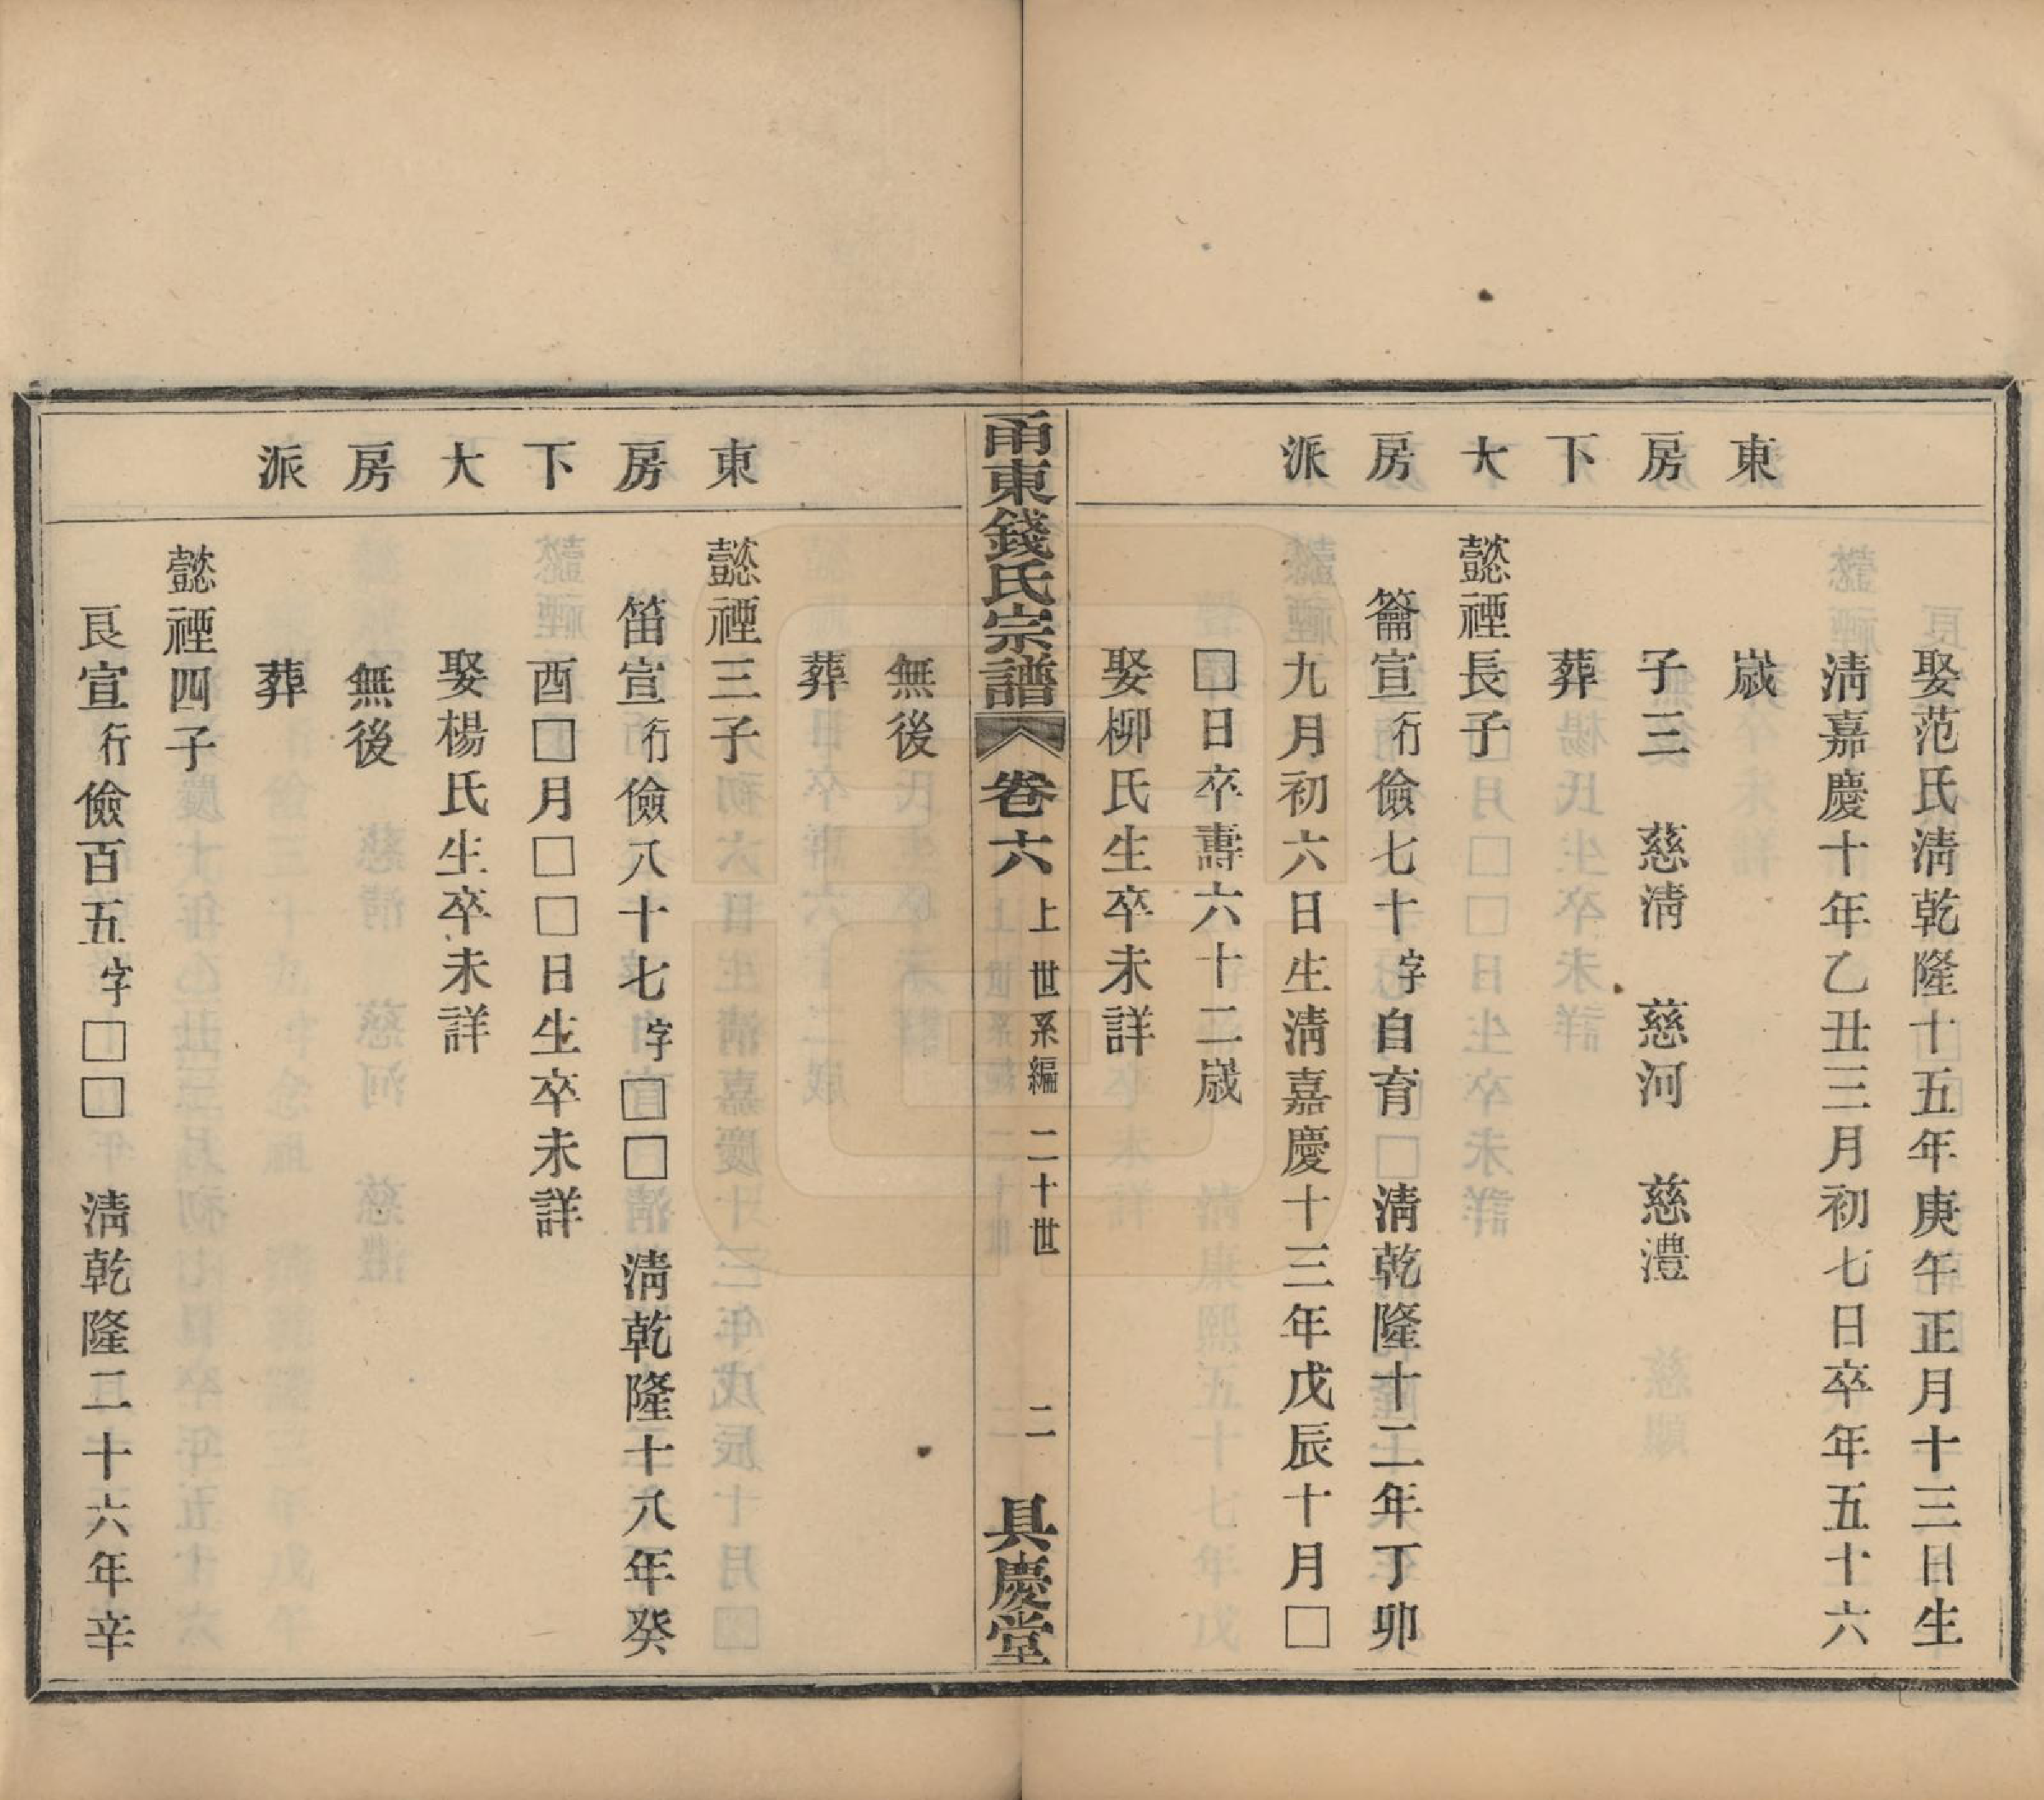 東房下大房派
娶范氏淸乾隆十五年庚午正月十三日生
淸嘉慶十年乙丑三月初七日卒年五十六
歲
子三 慈淸 慈河 慈澧
葬
懿禋長子
籥宣行儉七十字自育□淸乾隆十二年丁卯
九月初六日生淸嘉慶十三年戊辰十月□
□日卒壽六十二歲
娶柳氏生卒未詳
甬東錢氏宗譜 卷六 上世系編 二十世 二 具慶堂
東房下大房派
無後
葬
懿禋三子
笛宣行儉八十七字□□ 淸乾隆十八年癸
酉□月□□日生卒未詳
娶楊氏生卒未詳
無後
葬
懿禋四子
艮宣行儉百五字□□ 淸乾隆二十六年辛